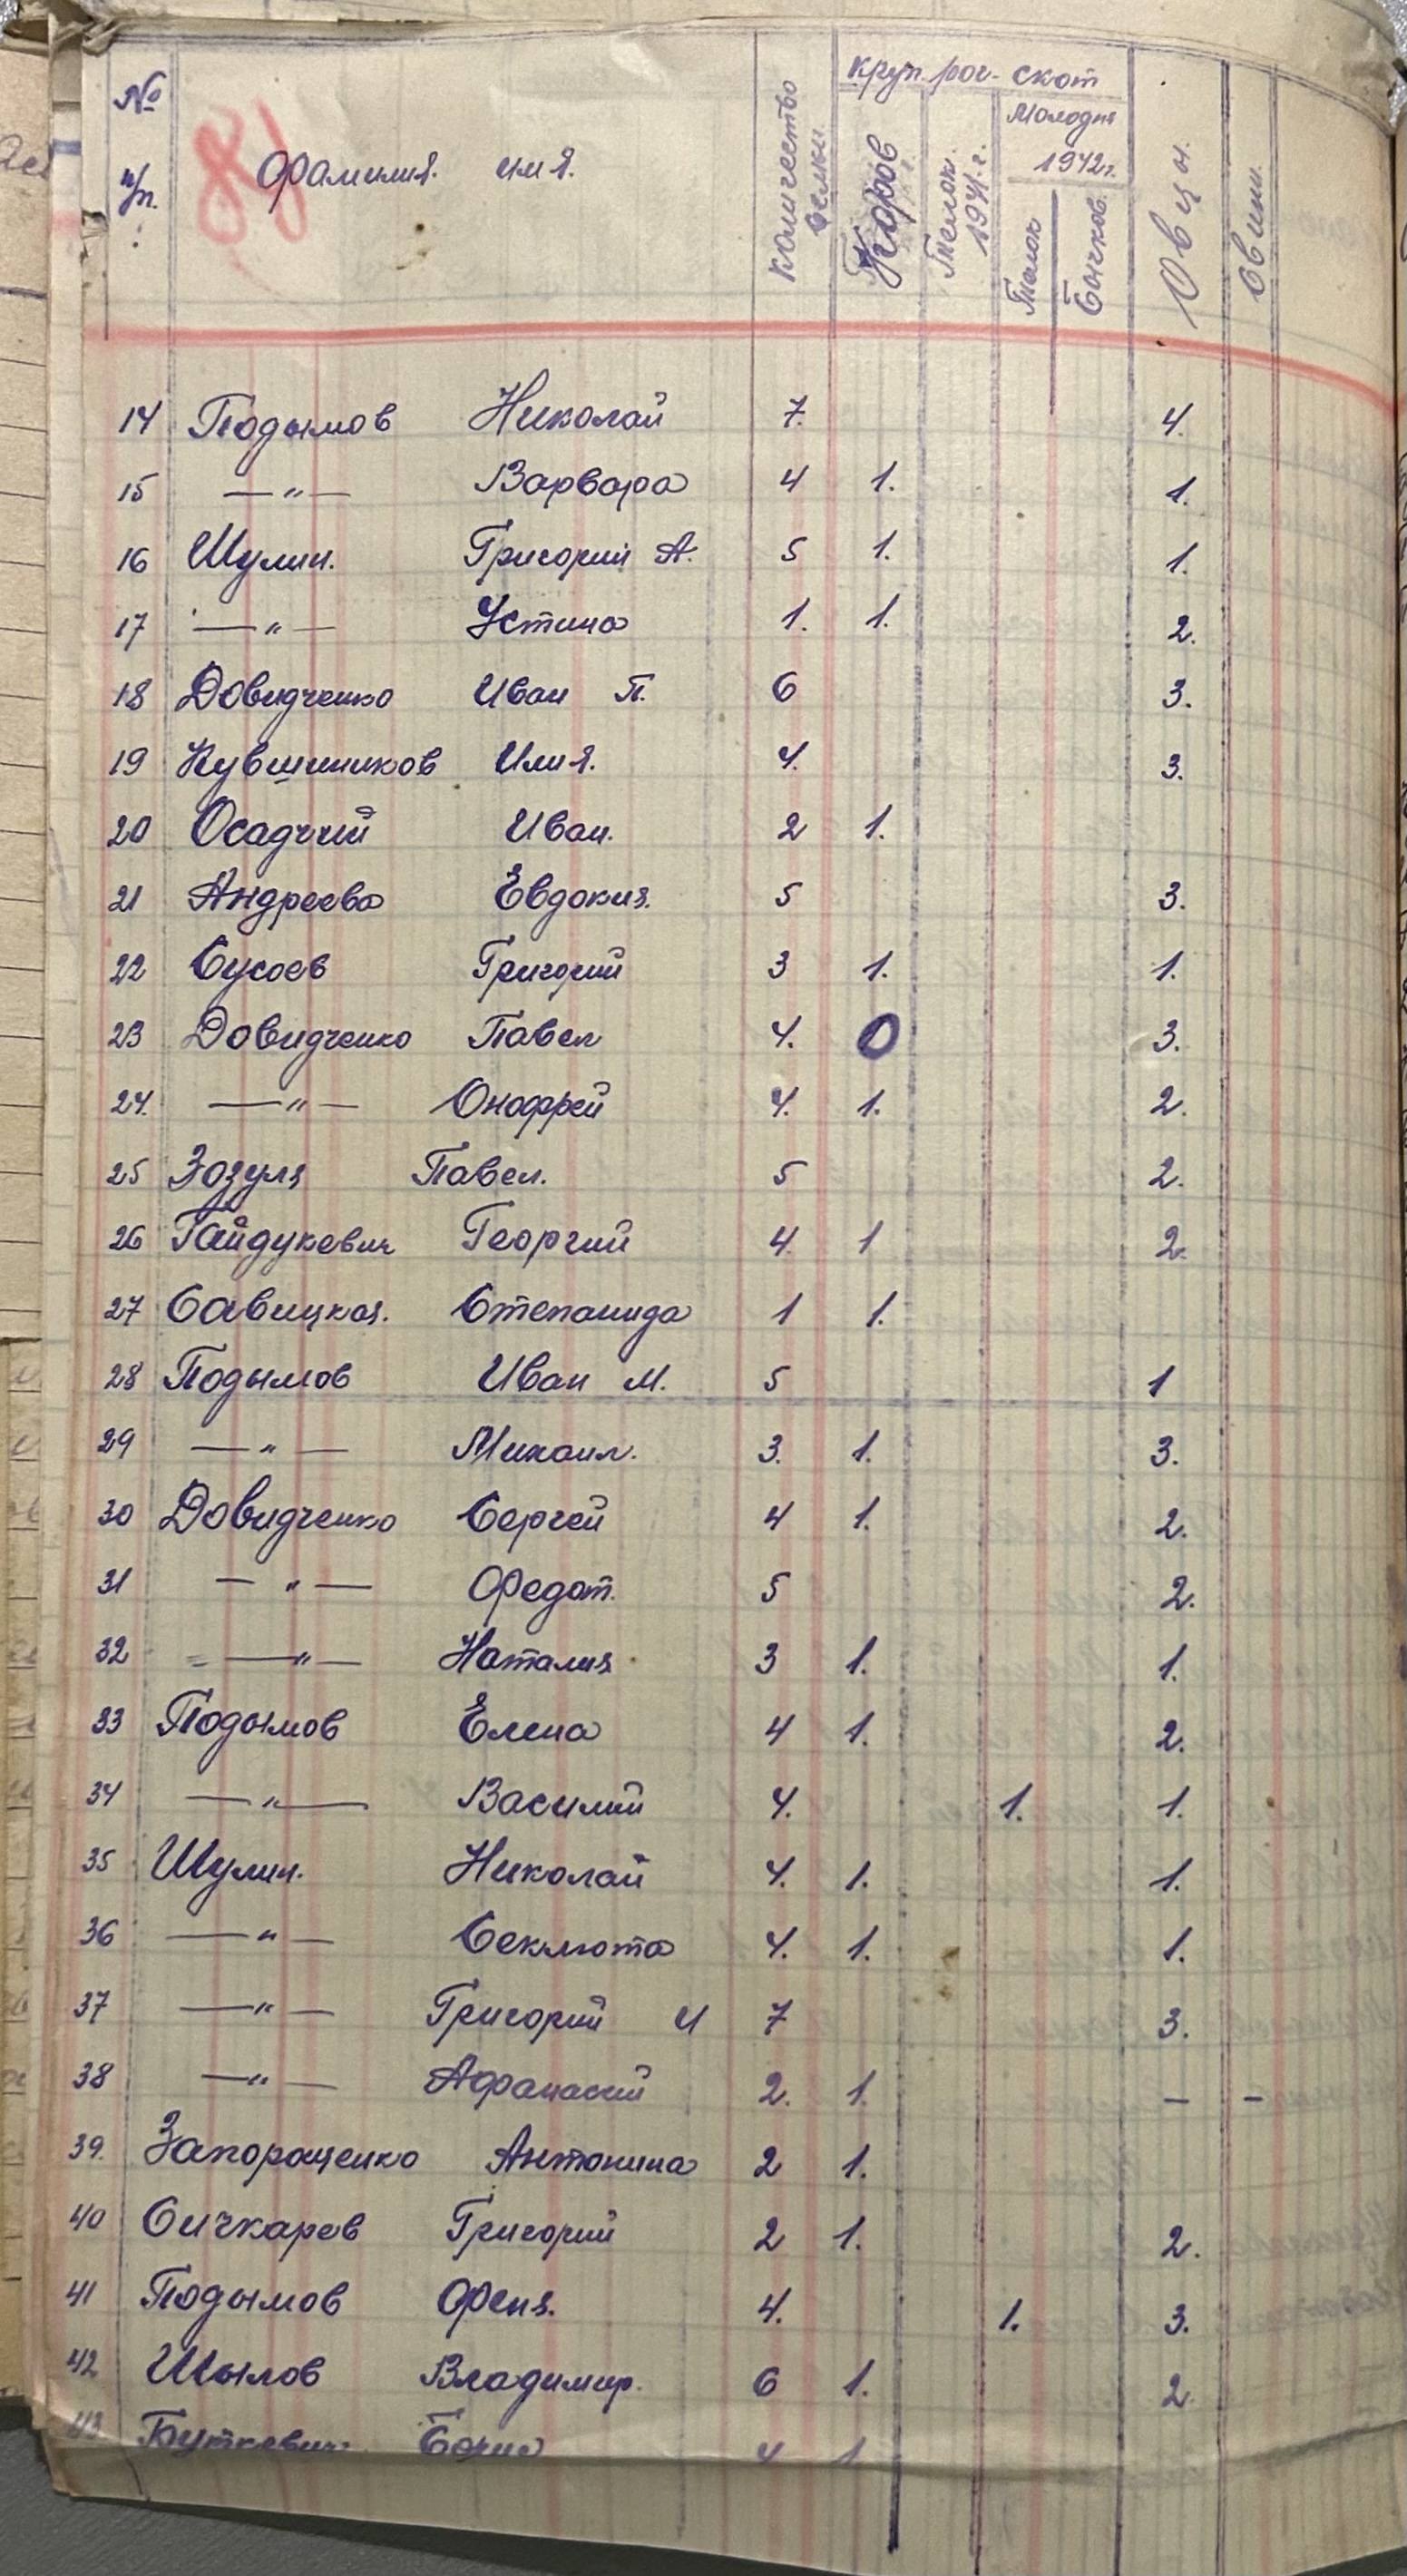 № п/п.
81
Фамилия. имя.
Количество семьи.
Круп. рог. скот
Коров
Телок. 1941 г.
Молодня 1942 г.
Телок
Бычков.
Овцы.
Свиньи.
14 Подымов Николай 7. 4.
15 —"— Варвара 4 1. 1.
16 Шулин. Григорий А. 5 1. 1.
17 —"— Устина 1. 1. 2.
18 Довидченко Иван П. 6 3.
19 Кувшиников Илия. 4. 3.
20 Осадчий Иван. 2 1.
21 Андреева Евдокия. 5 3.
22 Сусоев Григорий 3 1. 1.
23 Довидченко Павел 4. 0 3.
24. —"— Онофрей 4. 1. 2.
25 Зозуля Павел. 5 2.
26 Гайдукевич Георгий 4 1 2.
27 Савицкая. Степанида 1 1.
28 Подымов Иван М. 5 1
29 —"— Михаил. 3. 1. 3.
30 Довидченко Сергей 4 1. 2.
31 —"— Федот. 5 2.
32 —"— Наталия 3 1. 1.
33 Подымов Елена 4 1. 2.
34 —"— Василий 4. 1. 1.
35 Шулин. Николай 4. 1. 1.
36 —"— Секлюта 4. 1. 1.
37 —"— Григорий И 7 3.
38 —"— Афанасий 2. 1. — –
39. Запоращенко Антонина 2 1.
40 Сичкарев Григорий 2 1. 2.
41 Подымов Феня. 4. 1. 3.
42 Шылов Владимир. 6 1. 2
43 Буткевич 4 1